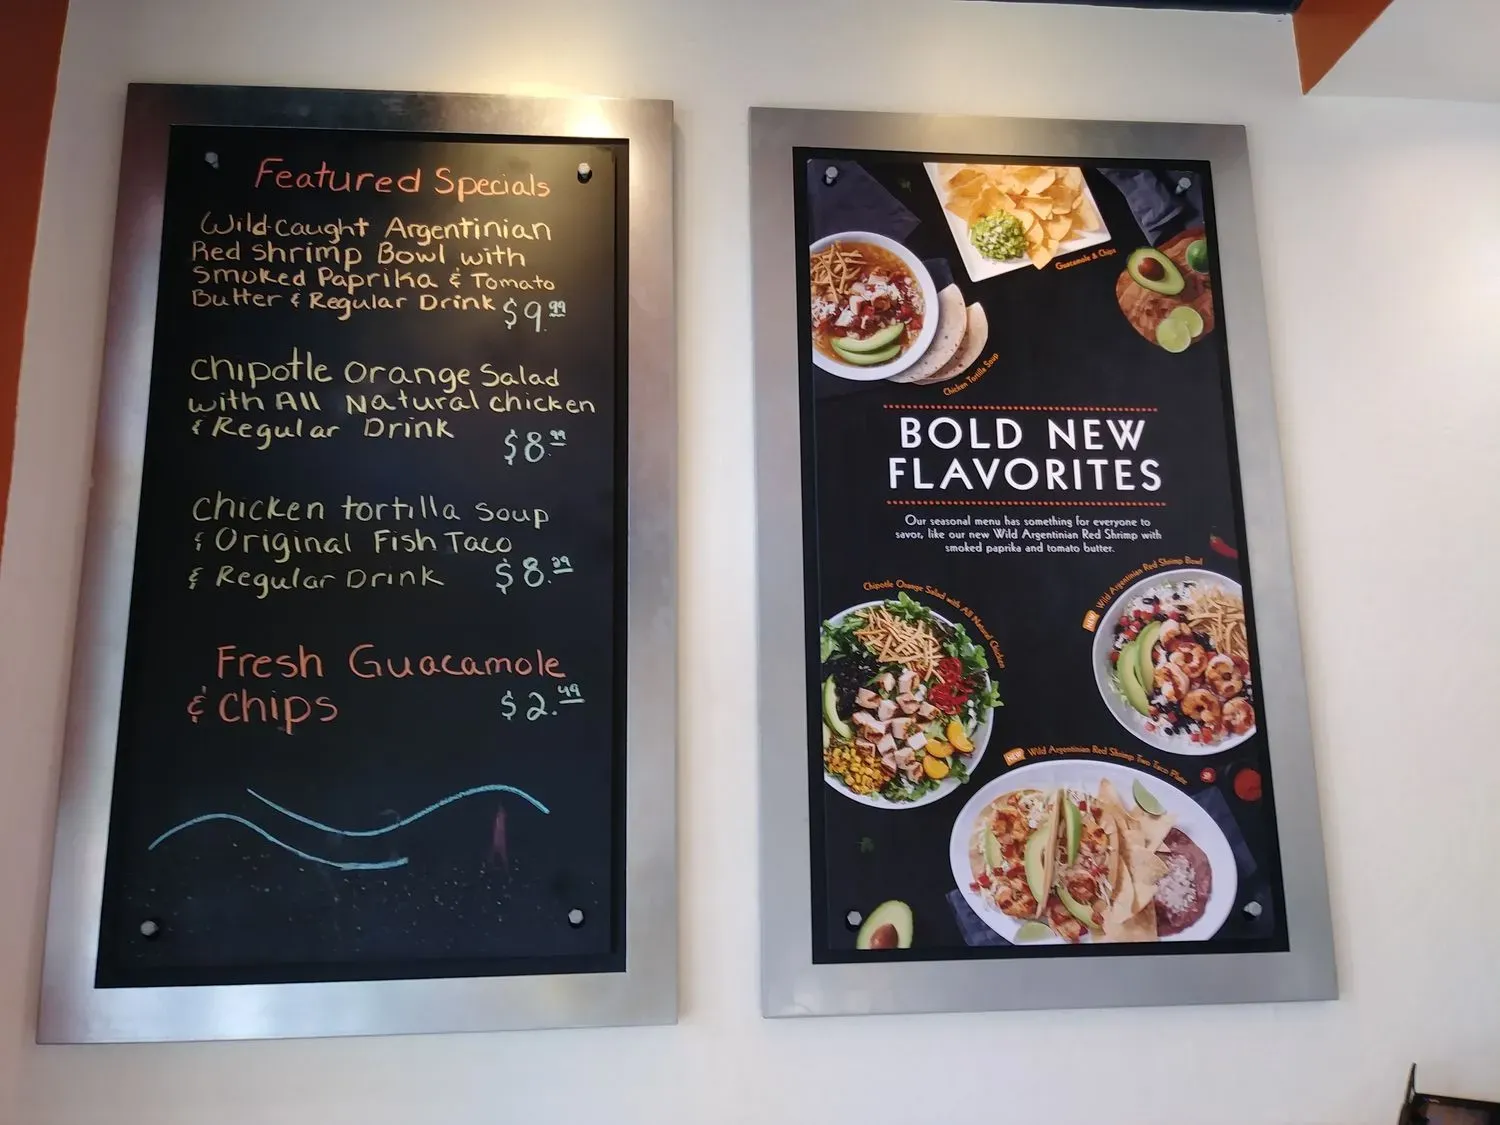 Featured Specials
Wild-Caught Argentinian
Red Shrimp Bowl with
Smoked Paprika & Tomato
Butter & Regular Drink $9.99
Chipotle Orange Salad
with All Natural chicken
& Regular Drink $8.99
Chicken tortilla Soup
& Original Fish Taco
& Regular Drink $8.29
Fresh Guacamole
& Chips $2.49
Guacamole & Chips
Chicken Tortilla Soup
BOLD NEW
FLAVORITES
Our seasonal menu has something for everyone to
savor, like our new Wild Argentinian Red Shrimp with
smoked paprika and tomato butter.
Chipotle Orange Salad with All Natural Chicken
NEW Wild Argentinian Red Shrimp Bowl
NEW Wild Argentinian Red Shrimp Two Taco Plate